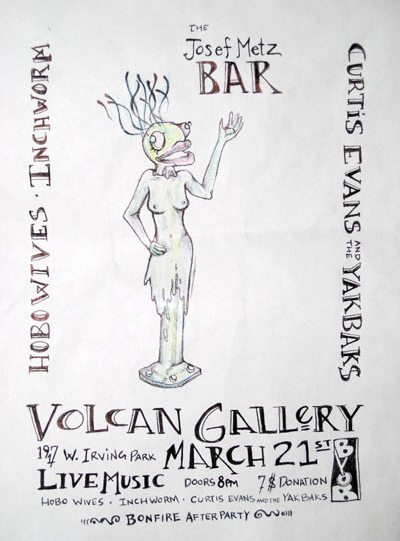 THE
Josef Metz
BAR
HOBO WIVES · INCHWORM
CURTIS EVANS AND THE YAKBAKS
VOLCAN GALLERY
W. IRVING PARK MARCH 21ST
B.Y.O.B.
LIVE MUSIC DOORS 8PM 7$ DONATION
HOBO WIVES · INCHWORM · CURTIS EVANS AND THE YAKBAKS
BONFIRE AFTERPARTY